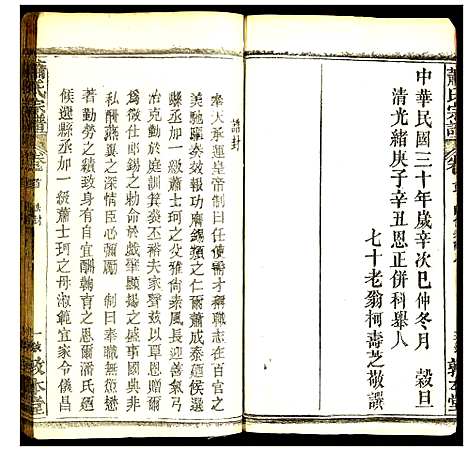 中華民國三十年歲辛次巳仲冬月 穀旦
清光緒庚子辛丑恩正併科舉人
七十老翁柯壽芝敬譔
蕭氏宗譜
敦本堂
誥封
奉天承運皇帝制曰任使需才稱職志在百官之
美馳驅奏效報功膺錫類之仁爾蕭成泰廼候選
縣丞加一級蕭士珂之父雅尚素風長迎善氣弓
冶克勤於庭訓箕裘丕裕夫家聲茲以覃恩贈
爲徵仕郎錫之勅命於戲肇顯揚之盛事國典非
私酬燕翼之深情臣心彌勵 制曰奉職無愆懋
著勤勞之績致身有自宜酬鞠育之恩爾潘氏廼
候選縣丞加一級蕭士珂之母淑範宜家令儀昌
蕭氏宗譜
誥封
敦本堂